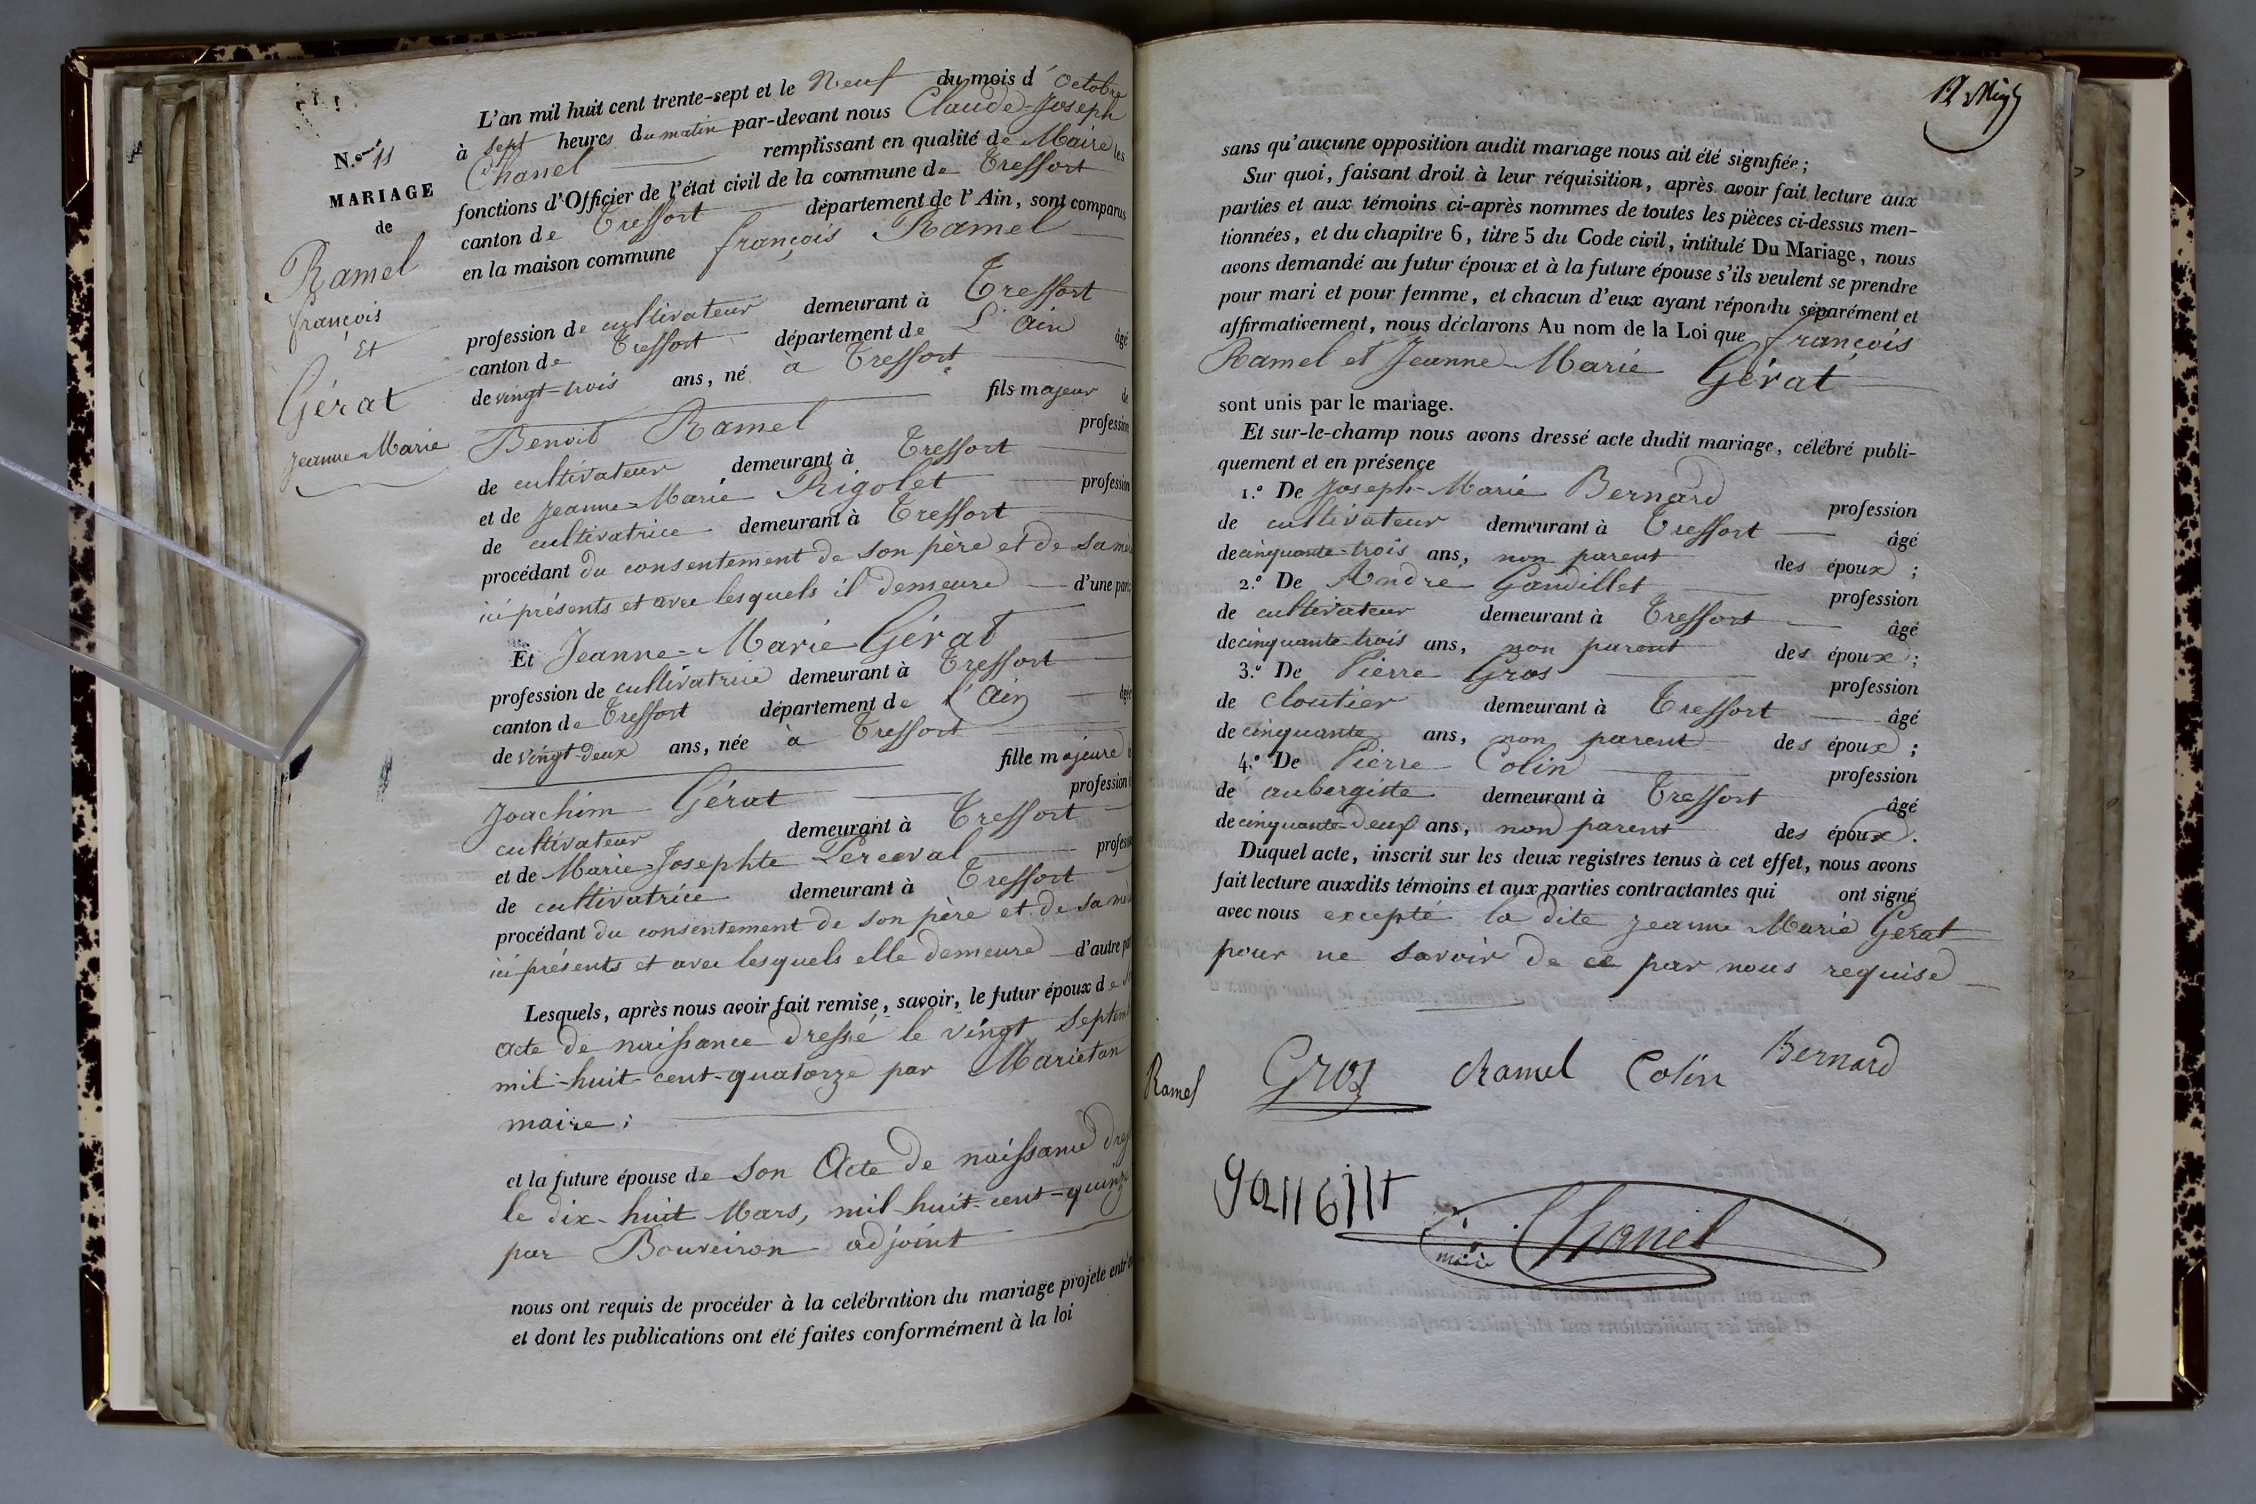 L'an mil huit cent trente-sept et le Neuf du mois d' Octobre
à sept heures du matin par-devant nous Claude-Joseph
Chanel remplissant en qualité de Maire les
fonctions d'Officier de l'état civil de la commune de Treffort
canton de Treffort département de l'Ain, sont comparus
en la maison commune françois Ramel
profession de cultivateur demeurant à Treffort
canton de Treffort département de L'Ain âgé
de vingt-trois ans, né à Treffort
fils majeur de
Benoit Ramel profession
de cultivateur demeurant à Treffort
et de Jeanne-Marie Rigolet profession
de cultivatrice demeurant à Treffort
procédant du consentement de son père et de sa mère
ici présents et avec lesquels il demeure d'une part
Et Jeanne-Marie Gérat
profession de cultivatrice demeurant à Treffort
canton de Treffort département de l'Ain âgée
de vingt-deux ans, née à Treffort
fille majeure
Joachim Gérat profession
cultivateur demeurant à Treffort
et de Marie-Josephte Perceval profession
de cultivatrice demeurant à Treffort
procédant du consentement de son père et de sa mère
ici présents et avec lesquels elle demeure d'autre part
Lesquels, après nous avoir fait remise, savoir, le futur époux de
Acte de naissance dressé le vingt Septem
mil-huit-cent-quatorze par Marietan
maire;
et la future épouse de son Acte de naissance
le dix-huit Mars, mil-huit-cent-quinze
par Bouveiron adjoint
nous ont requis de procéder à la celébration du mariage projeté
et dont les publications ont été faites conformément à la loi
N.º 11
MARIAGE
de
Ramel
françois
Et
Gérat
Jeanne-Marie
12
sans qu'aucune opposition audit mariage nous ait été signifiée;
Sur quoi, faisant droit à leur réquisition, après avoir fait lecture aux
parties et aux témoins ci-après nommes de toutes les pièces ci-dessus men-
tionnées, et du chapitre 6, titre 5 du Code civil, intitulé Du Mariage, nous
avons demandé au futur époux et à la future épouse s'ils veulent se prendre
pour mari et pour femme, et chacun d'eux ayant répondu séparément et
affirmativement, nous déclarons Au nom de la Loi que françois
Ramel et Jeanne-Marie Gérat
sont unis par le mariage.
Et sur-le-champ nous avons dressé acte dudit mariage, célébré publi-
quement et en présence
1.º De Joseph-Marie Bernard profession
de cultivateur demeurant à Treffort âgé
de cinquante-trois ans, non parent des époux;
2.º De André Gandillet profession
de cultivateur demeurant à Treffort âgé
de cinquante-trois ans, non parent des époux;
3.º De Pierre Gros profession
de Cloutier demeurant à Treffort âgé
de cinquante ans, non parent des époux;
4.º De Pierre Colin profession
de aubergiste demeurant à Treffort âgé
de cinquante-deux ans, non parent des époux.
Duquel acte, inscrit sur les deux registres tenus à cet effet, nous avons
fait lecture auxdits témoins et aux parties contractantes qui ont signé
avec nous excepté la dite Jeanne Marie Gérat
pour ne savoir de ce par nous requise
Ramel Gros Ramel Colin Bernard
Chanel
maire